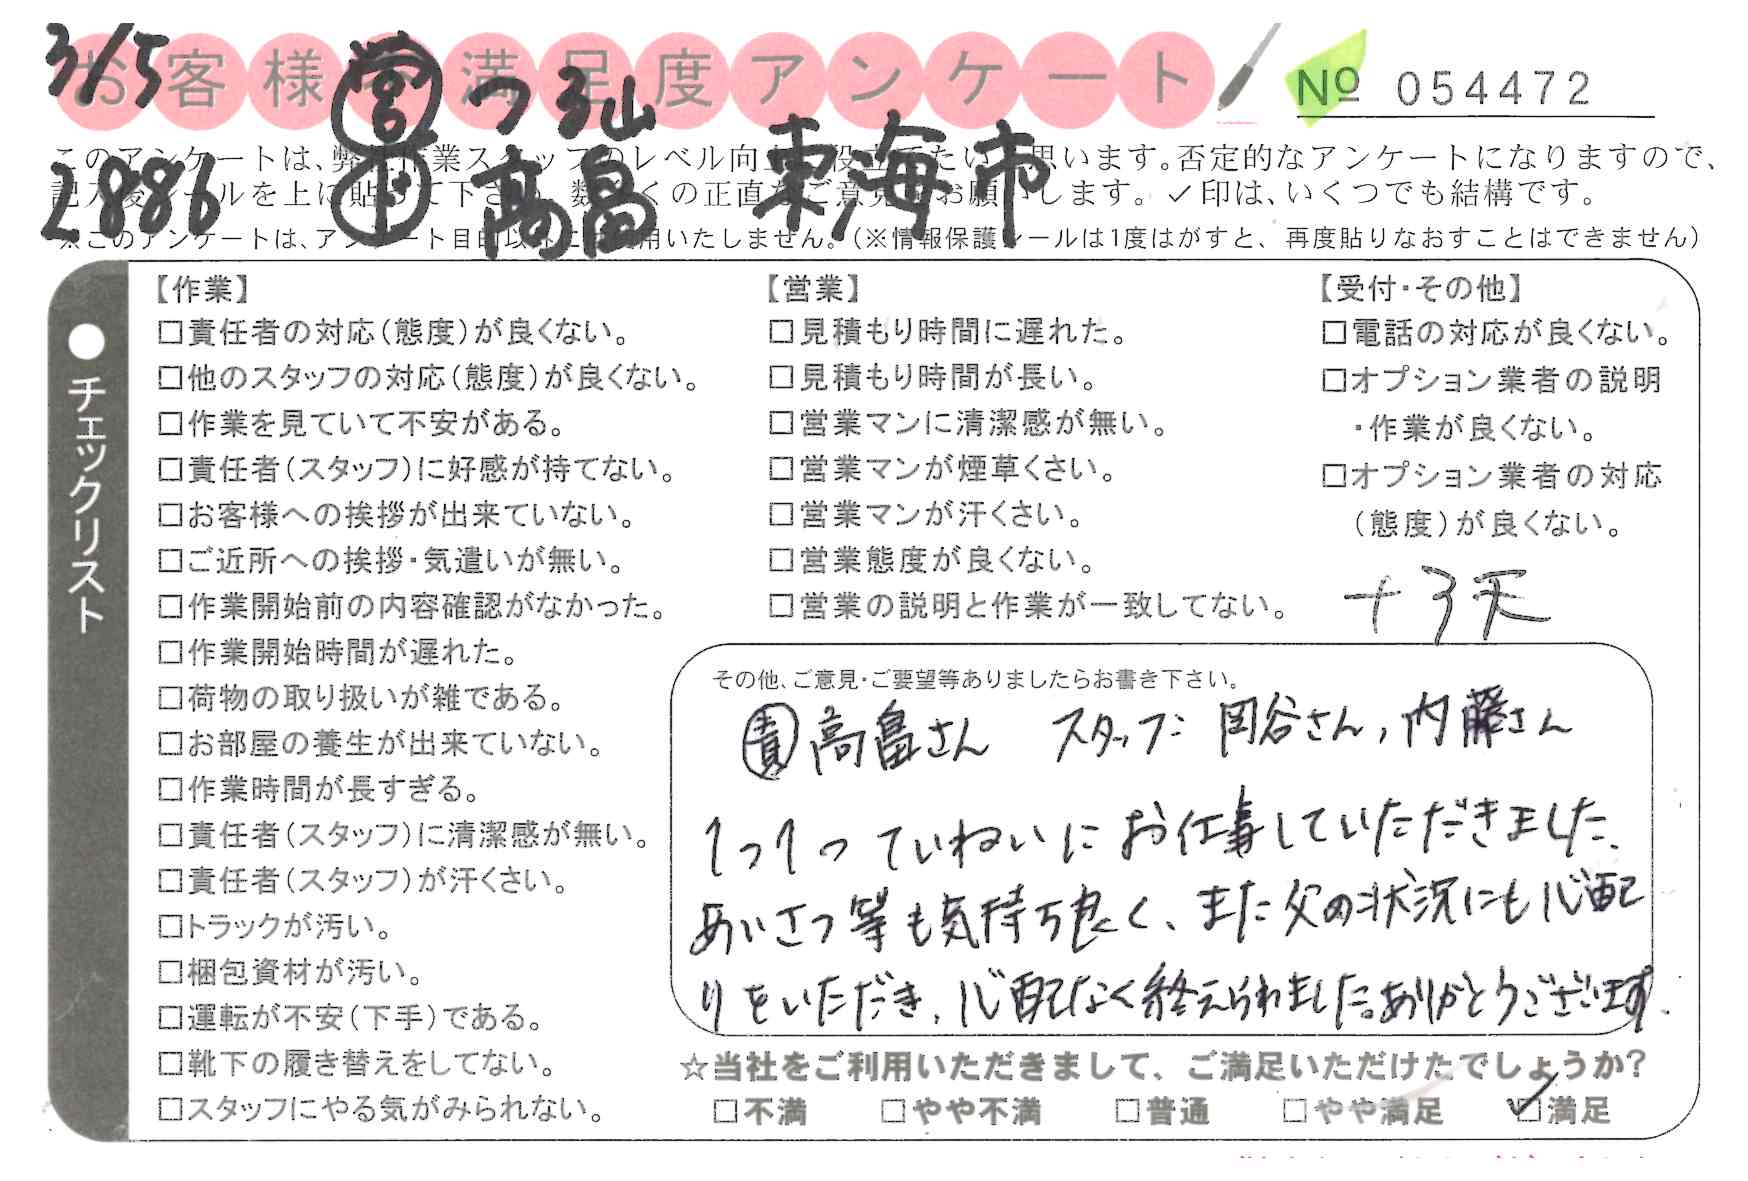 3/5 営 つる山
お客様満足度アンケート № 054472
2886 高畠 東海市
このアンケートは、弊社作業スタッフのレベル向上に役立てたいと思います。否定的なアンケートになりますので、
記入後シールを上に貼って下さい。数多くの正直なご意見をお願いします。✓印は、いくつでも結構です。
※このアンケートは、アンケート目的以外には利用いたしません。(※情報保護シールは1度はがすと、再度貼りなおすことはできません)
●チェックリスト
【作業】
□責任者の対応(態度)が良くない。
□他のスタッフの対応(態度)が良くない。
□作業を見ていて不安がある。
□責任者(スタッフ)に好感が持てない。
□お客様への挨拶が出来ていない。
□ご近所への挨拶・気遣いが無い。
□作業開始前の内容確認がなかった。
□作業開始時間が遅れた。
□荷物の取り扱いが雑である。
□お部屋の養生が出来ていない。
□作業時間が長すぎる。
□責任者(スタッフ)に清潔感が無い。
□責任者(スタッフ)が汗くさい。
□トラックが汚い。
□梱包資材が汚い。
□運転が不安(下手)である。
□靴下の履き替えをしてない。
□スタッフにやる気がみられない。
【営業】
□見積もり時間に遅れた。
□見積もり時間が長い。
□営業マンに清潔感が無い。
□営業マンが煙草くさい。
□営業マンが汗くさい。
□営業態度が良くない。
□営業の説明と作業が一致してない。
【受付・その他】
□電話の対応が良くない。
□オプション業者の説明
・作業が良くない。
□オプション業者の対応
(態度)が良くない。
+3天
その他、ご意見・ご要望等ありましたらお書き下さい。
責 高畠さん スタッフ: 岡谷さん, 内藤さん
1つ1つていねいにお仕事していただきました、
あいさつ等も気持ち良く、また父の状況にも心配
りをいただき、心配なく終えられました。ありがとうございます。
☆当社をご利用いただきまして、ご満足いただけたでしょうか?
□不満 □やや不満 □普通 □やや満足 ☑満足